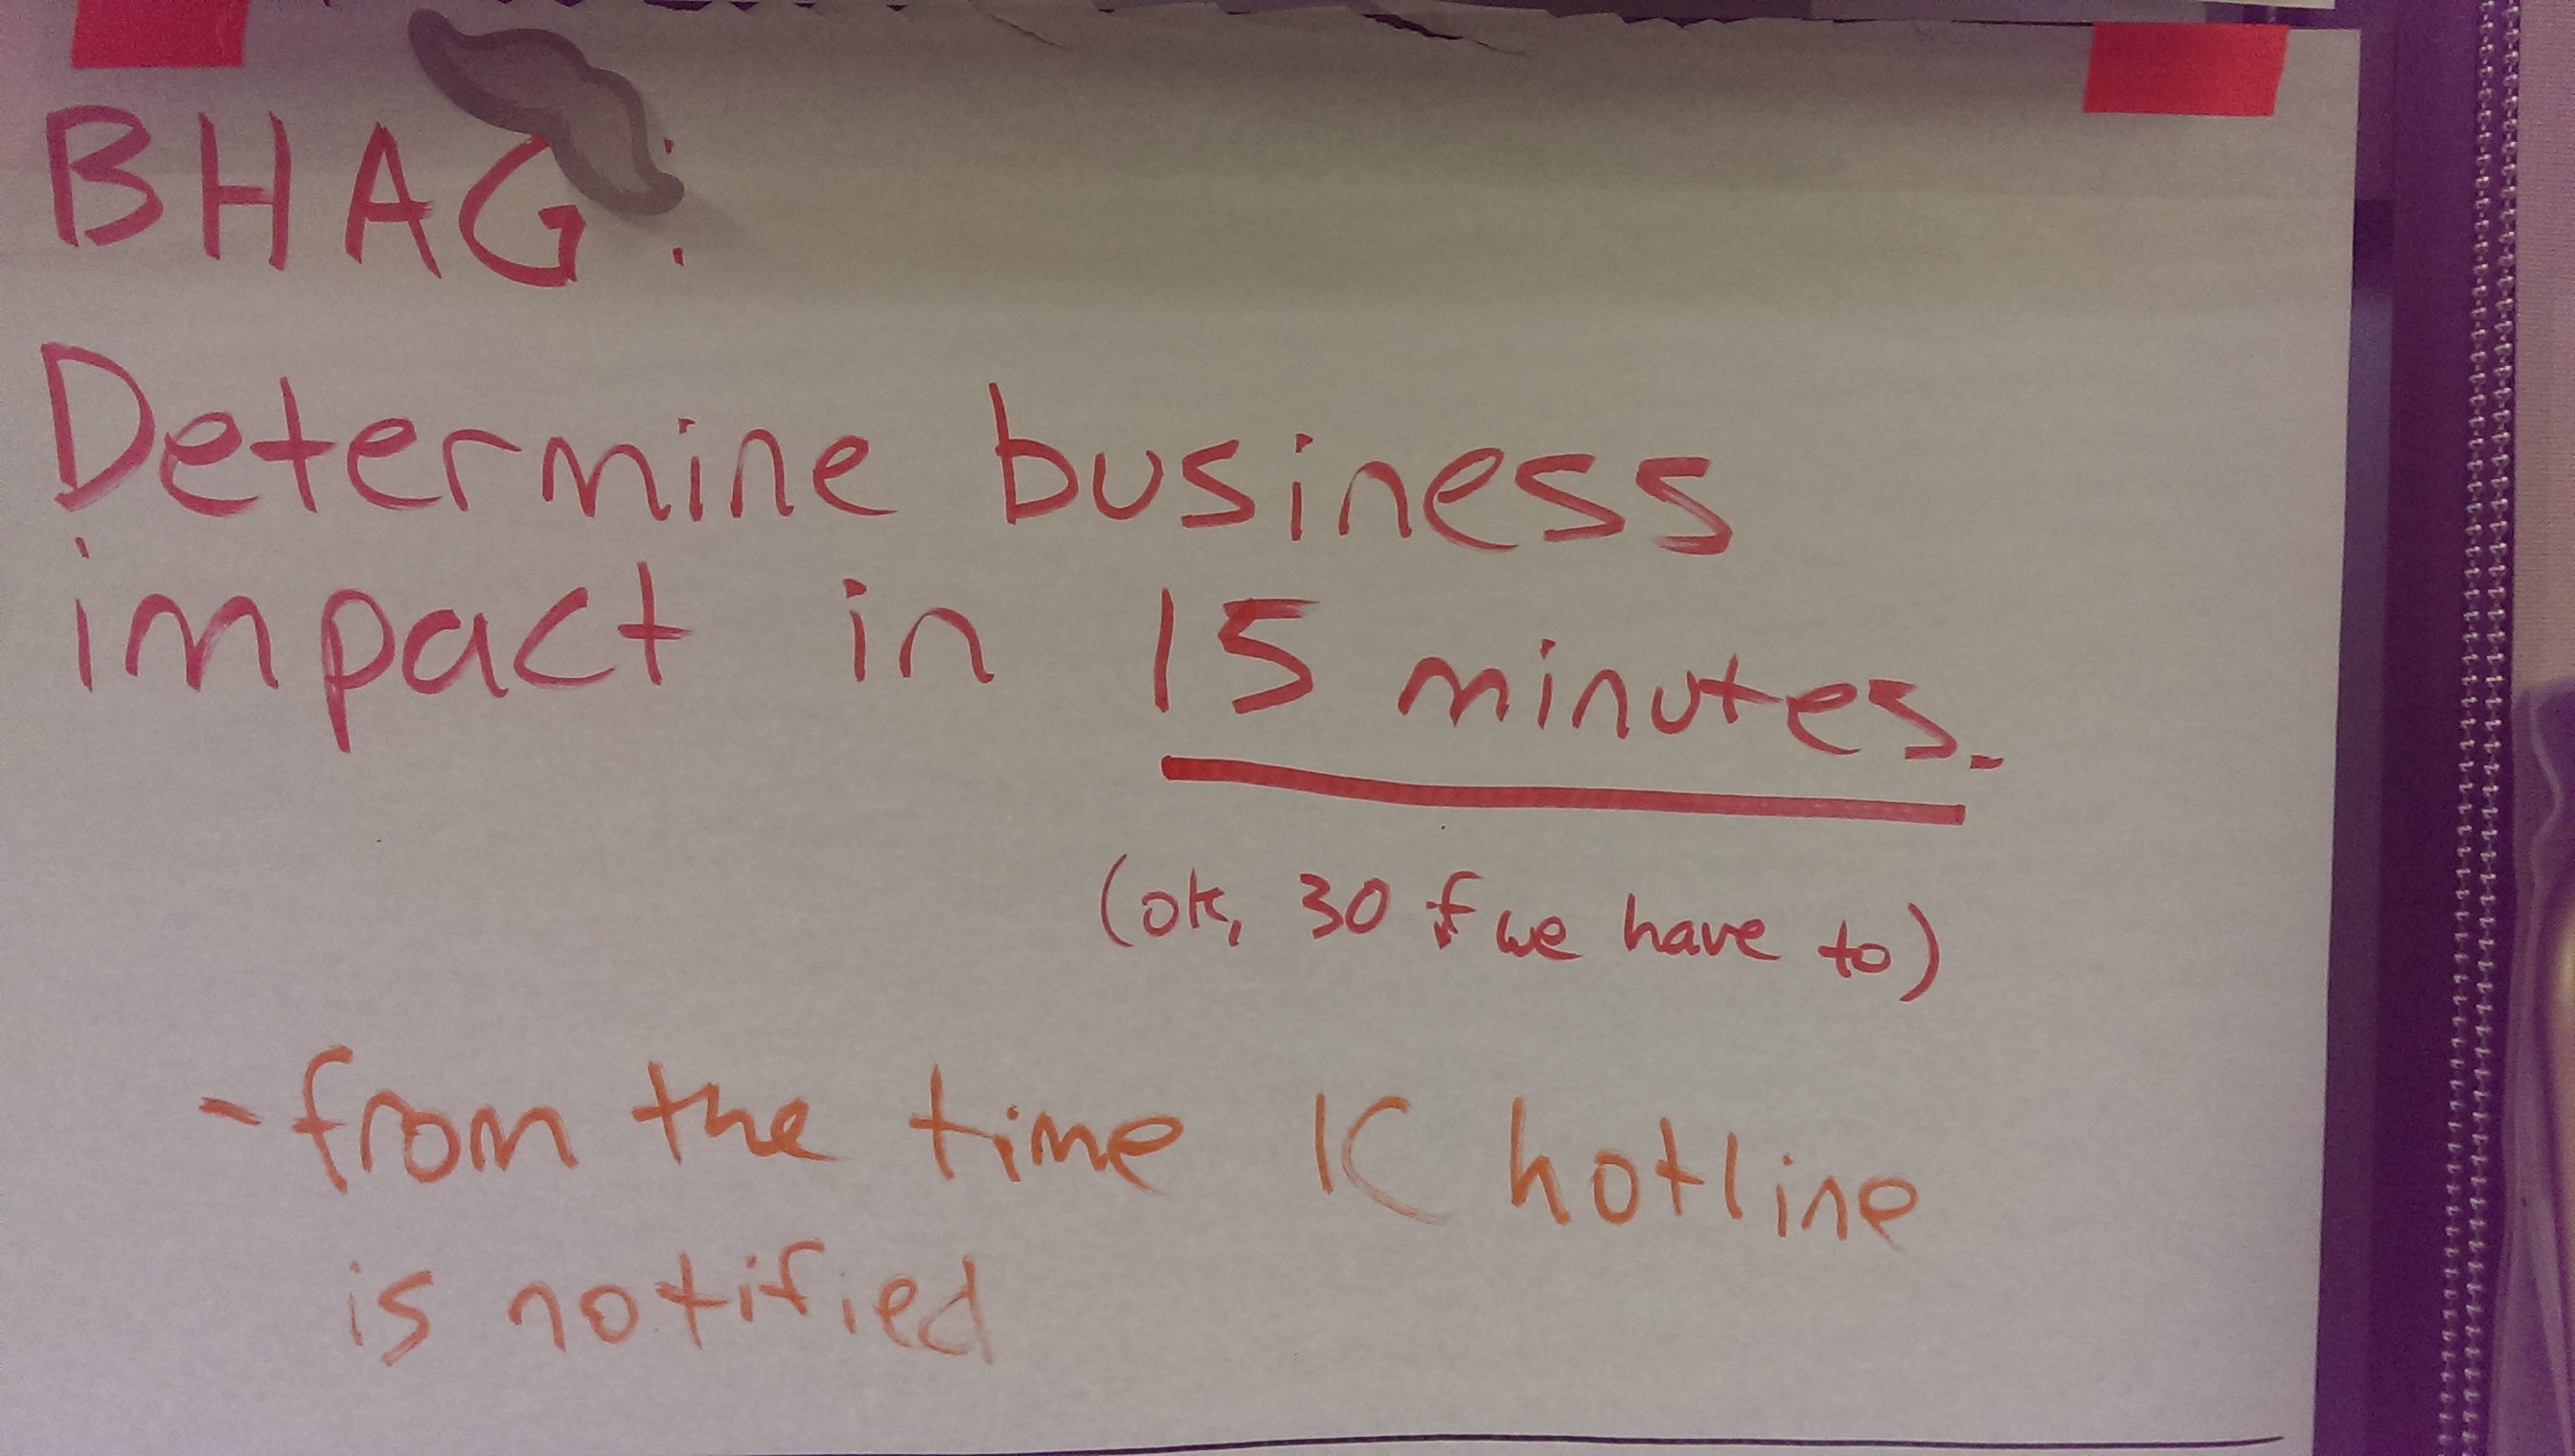 BHAG:
Determine business
impact in 15 minutes.
(ok, 30 if we have to)
- from the time IC hotline
is notified